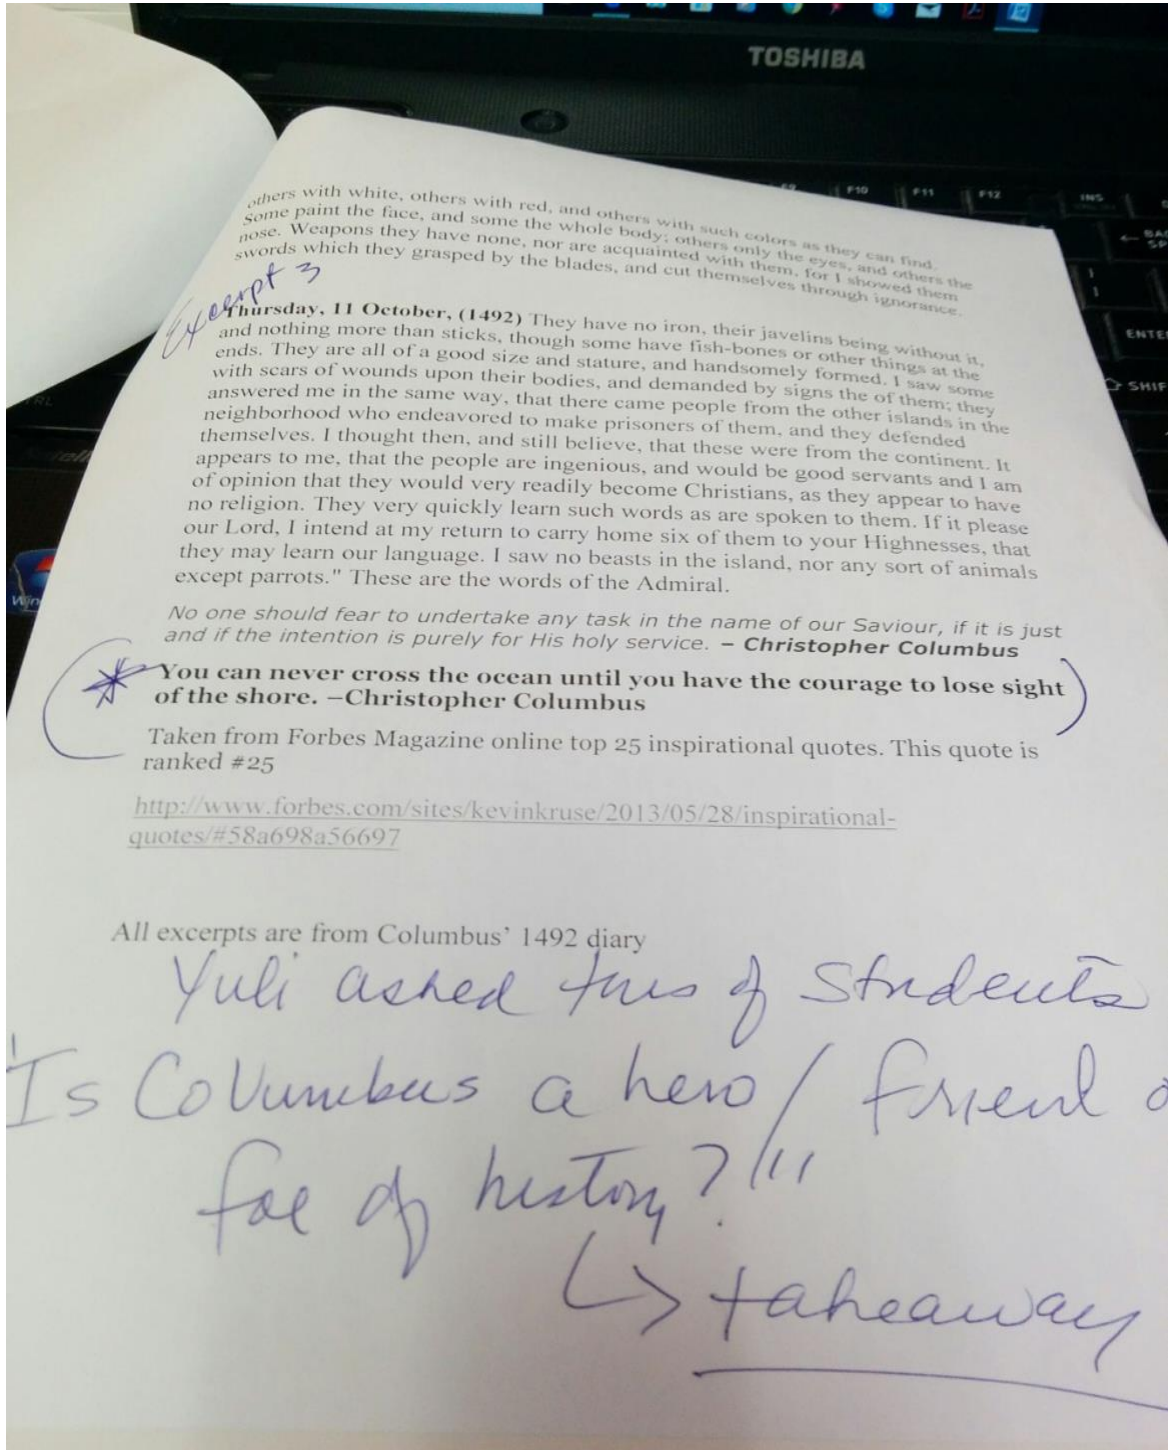 TOSHIBA
F10 F11 F12 INS
ENTE
SHIF
others with white, others with red, and others with such colors as they can find.
Some paint the face, and some the whole body; others only the eyes, and others the
nose. Weapons they have none, nor are acquainted with them, for I showed them
swords which they grasped by the blades, and cut themselves through ignorance.
Excerpt 3
Thursday, 11 October, (1492) They have no iron, their javelins being without it,
and nothing more than sticks, though some have fish-bones or other things at the
ends. They are all of a good size and stature, and handsomely formed. I saw some
with scars of wounds upon their bodies, and demanded by signs the of them; they
answered me in the same way, that there came people from the other islands in the
neighborhood who endeavored to make prisoners of them, and they defended
themselves. I thought then, and still believe, that these were from the continent. It
appears to me, that the people are ingenious, and would be good servants and I am
of opinion that they would very readily become Christians, as they appear to have
no religion. They very quickly learn such words as are spoken to them. If it please
our Lord, I intend at my return to carry home six of them to your Highnesses, that
they may learn our language. I saw no beasts in the island, nor any sort of animals
except parrots." These are the words of the Admiral.
No one should fear to undertake any task in the name of our Saviour, if it is just
and if the intention is purely for His holy service. – Christopher Columbus
You can never cross the ocean until you have the courage to lose sight
of the shore. –Christopher Columbus
Taken from Forbes Magazine online top 25 inspirational quotes. This quote is
ranked #25
http://www.forbes.com/sites/kevinkruse/2013/05/28/inspirational-
quotes/#58a698a56697
All excerpts are from Columbus' 1492 diary
Yuli asked this of Students
"Is Columbus a hero/ friend o
foe of history?"
takeaway